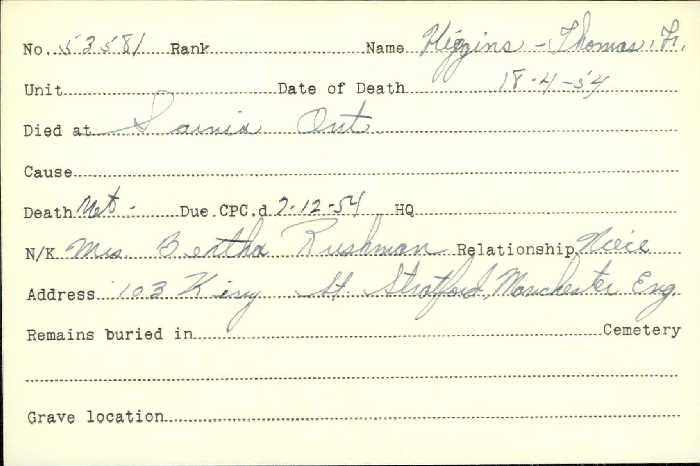 No. 53581 Rank Name Higgins - Thomas, H.
Unit Date of Death 18-4-54
Died at Sarnia Ont
Cause
Death Due CPC.d 7-12-54 HQ
N/K Mrs. Bertha Rushman Relationship Niece
Address 103 King St. Stratford, Manchester Eng.
Remains buried in Cemetery
Grave location